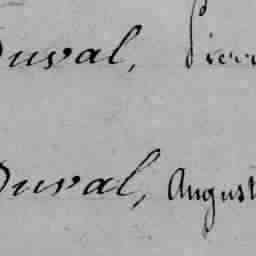 Duval, Pierr
Duval, August